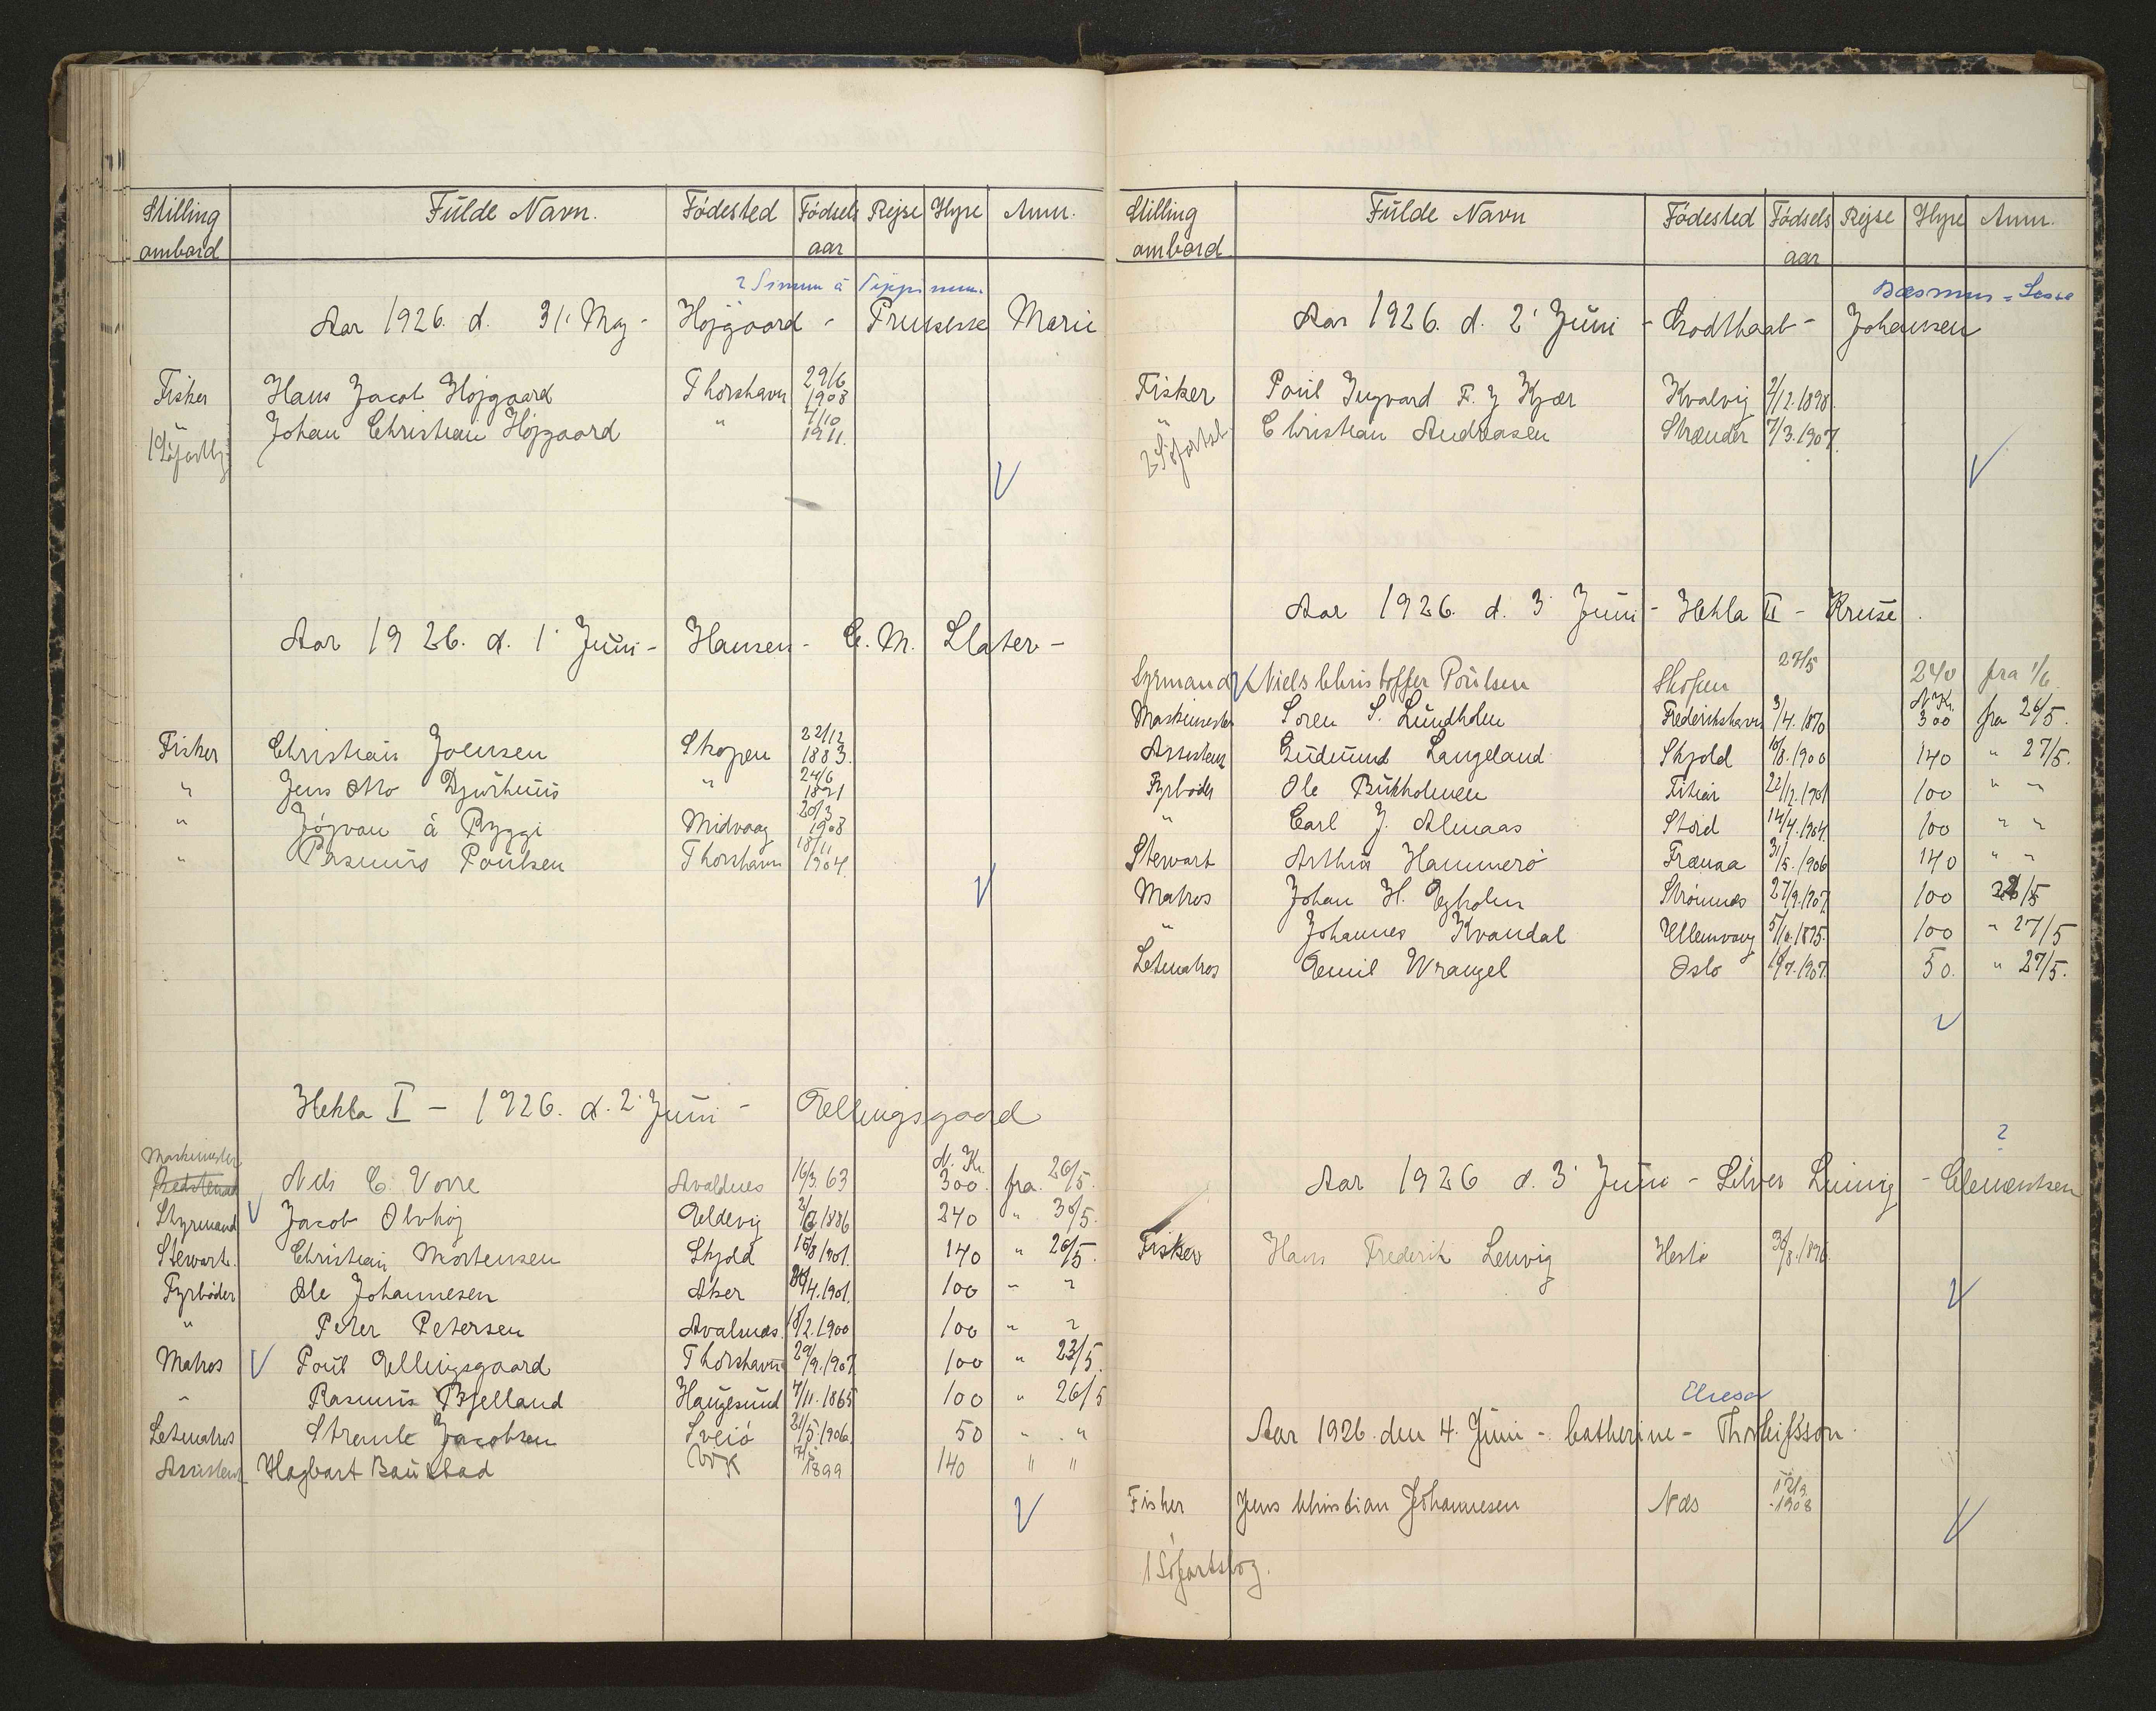 Stilling Fulde Navn. Fødested Fødsels Rejse Hyre Anm.
ombord aar
Aar 1926. d. 31' Maj - Højgaard - Prinsesse Marie
Fisker Hans Jacob Højgaard Thorshavn 29/6 1908
" Johan Christian Højgaard " 7/10 1911.
Aar 1926. d. 1' Juni - Hansen - C. M. Slater -
Fisker Christian Joensen Skopen 22/12 1883.
" Jens Otto Djurhuus " 24/6 1891
" Jógvan á Ryggi Midvaag 20/3 1908
" Rasmus Poulsen Thorshavn 18/11 1904.
Hekla I - 1926. d. 2' Juni - Ellingsgaard
Maskinmester N. Kr.
Nils C. Vorre Avaldnes 16/3 63 300. fra 26/5.
Styrmand V Jacob Olvhøj Eldevig 1886 240 " 30/5.
Stewart. Christian Mortensen Skjold 15/8 1901. 140 " 26/5.
Fyrbøder Ole Johannesen Aker 4. 1901. 100 " "
" Peter Petersen Avalnæs. 18/2. 1900 100 " "
Matros V Poul Ellingsgaard Thorshavn 29/9. 1907 100 " 23/5.
" Rasmus Bjelland Haugesund 7/11. 1865 100 " 26/5
Letmatros Jacobsen Sveió 21/5. 1906. 50 " "
Assistent Hagbart Baustad Vik 1899 140 " "
Stilling Fulde Navn Fødested Fødsels Rejse Hyre Anm.
ombord aar
Aar 1926. d. 2' Juni - Godthaab - Johansen
Fisker Poul Ingvard F. J Kjær Kvalvig 2/12. 1898.
" Christian Andreasen Strænder 7/3. 1907.
2 Søfartsb.
Aar 1926. d. 3' Juni - Hekla II - Kruse.
Syrmand V Niels Christoffer Poulsen Skopen 27/5 240 fra 1/6
N Kr.
Maskinmester Soren S. Lundholm Frederikshavn 3/4. 1870 300 fra 26/5.
Assistent Gudmund Langeland Skjold 10/8. 1900 140 " 27/5.
Fyrbøder Ole Bukholmen Fitiar 22/12. 1901 100 " "
" Carl J. Almaas Stord 14/4. 1904. 100 " "
Stewart Arthur Hammerö Frænaa 31/5. 1906 140 " "
Matros Johan H. Egholm Strømnæs 27/9. 1907. 100
" Johannes Kvandal Ullensvang 1875. 100 " 27/5
Letmatros Emil Wrangel Oslo 7. 1907. 50. " 27/5.
?
Aar 1926 d. 3' Juni - Silver Luinig - Clementsen
Fisker Hans Frederik Lervig Hestø 1896.
Eliesar
Aar 1926. den 4. Juni - Catherine - Thorleifsson.
Fisker Jens Christian Johannesen Næs 1908
1 Søfartsbog.